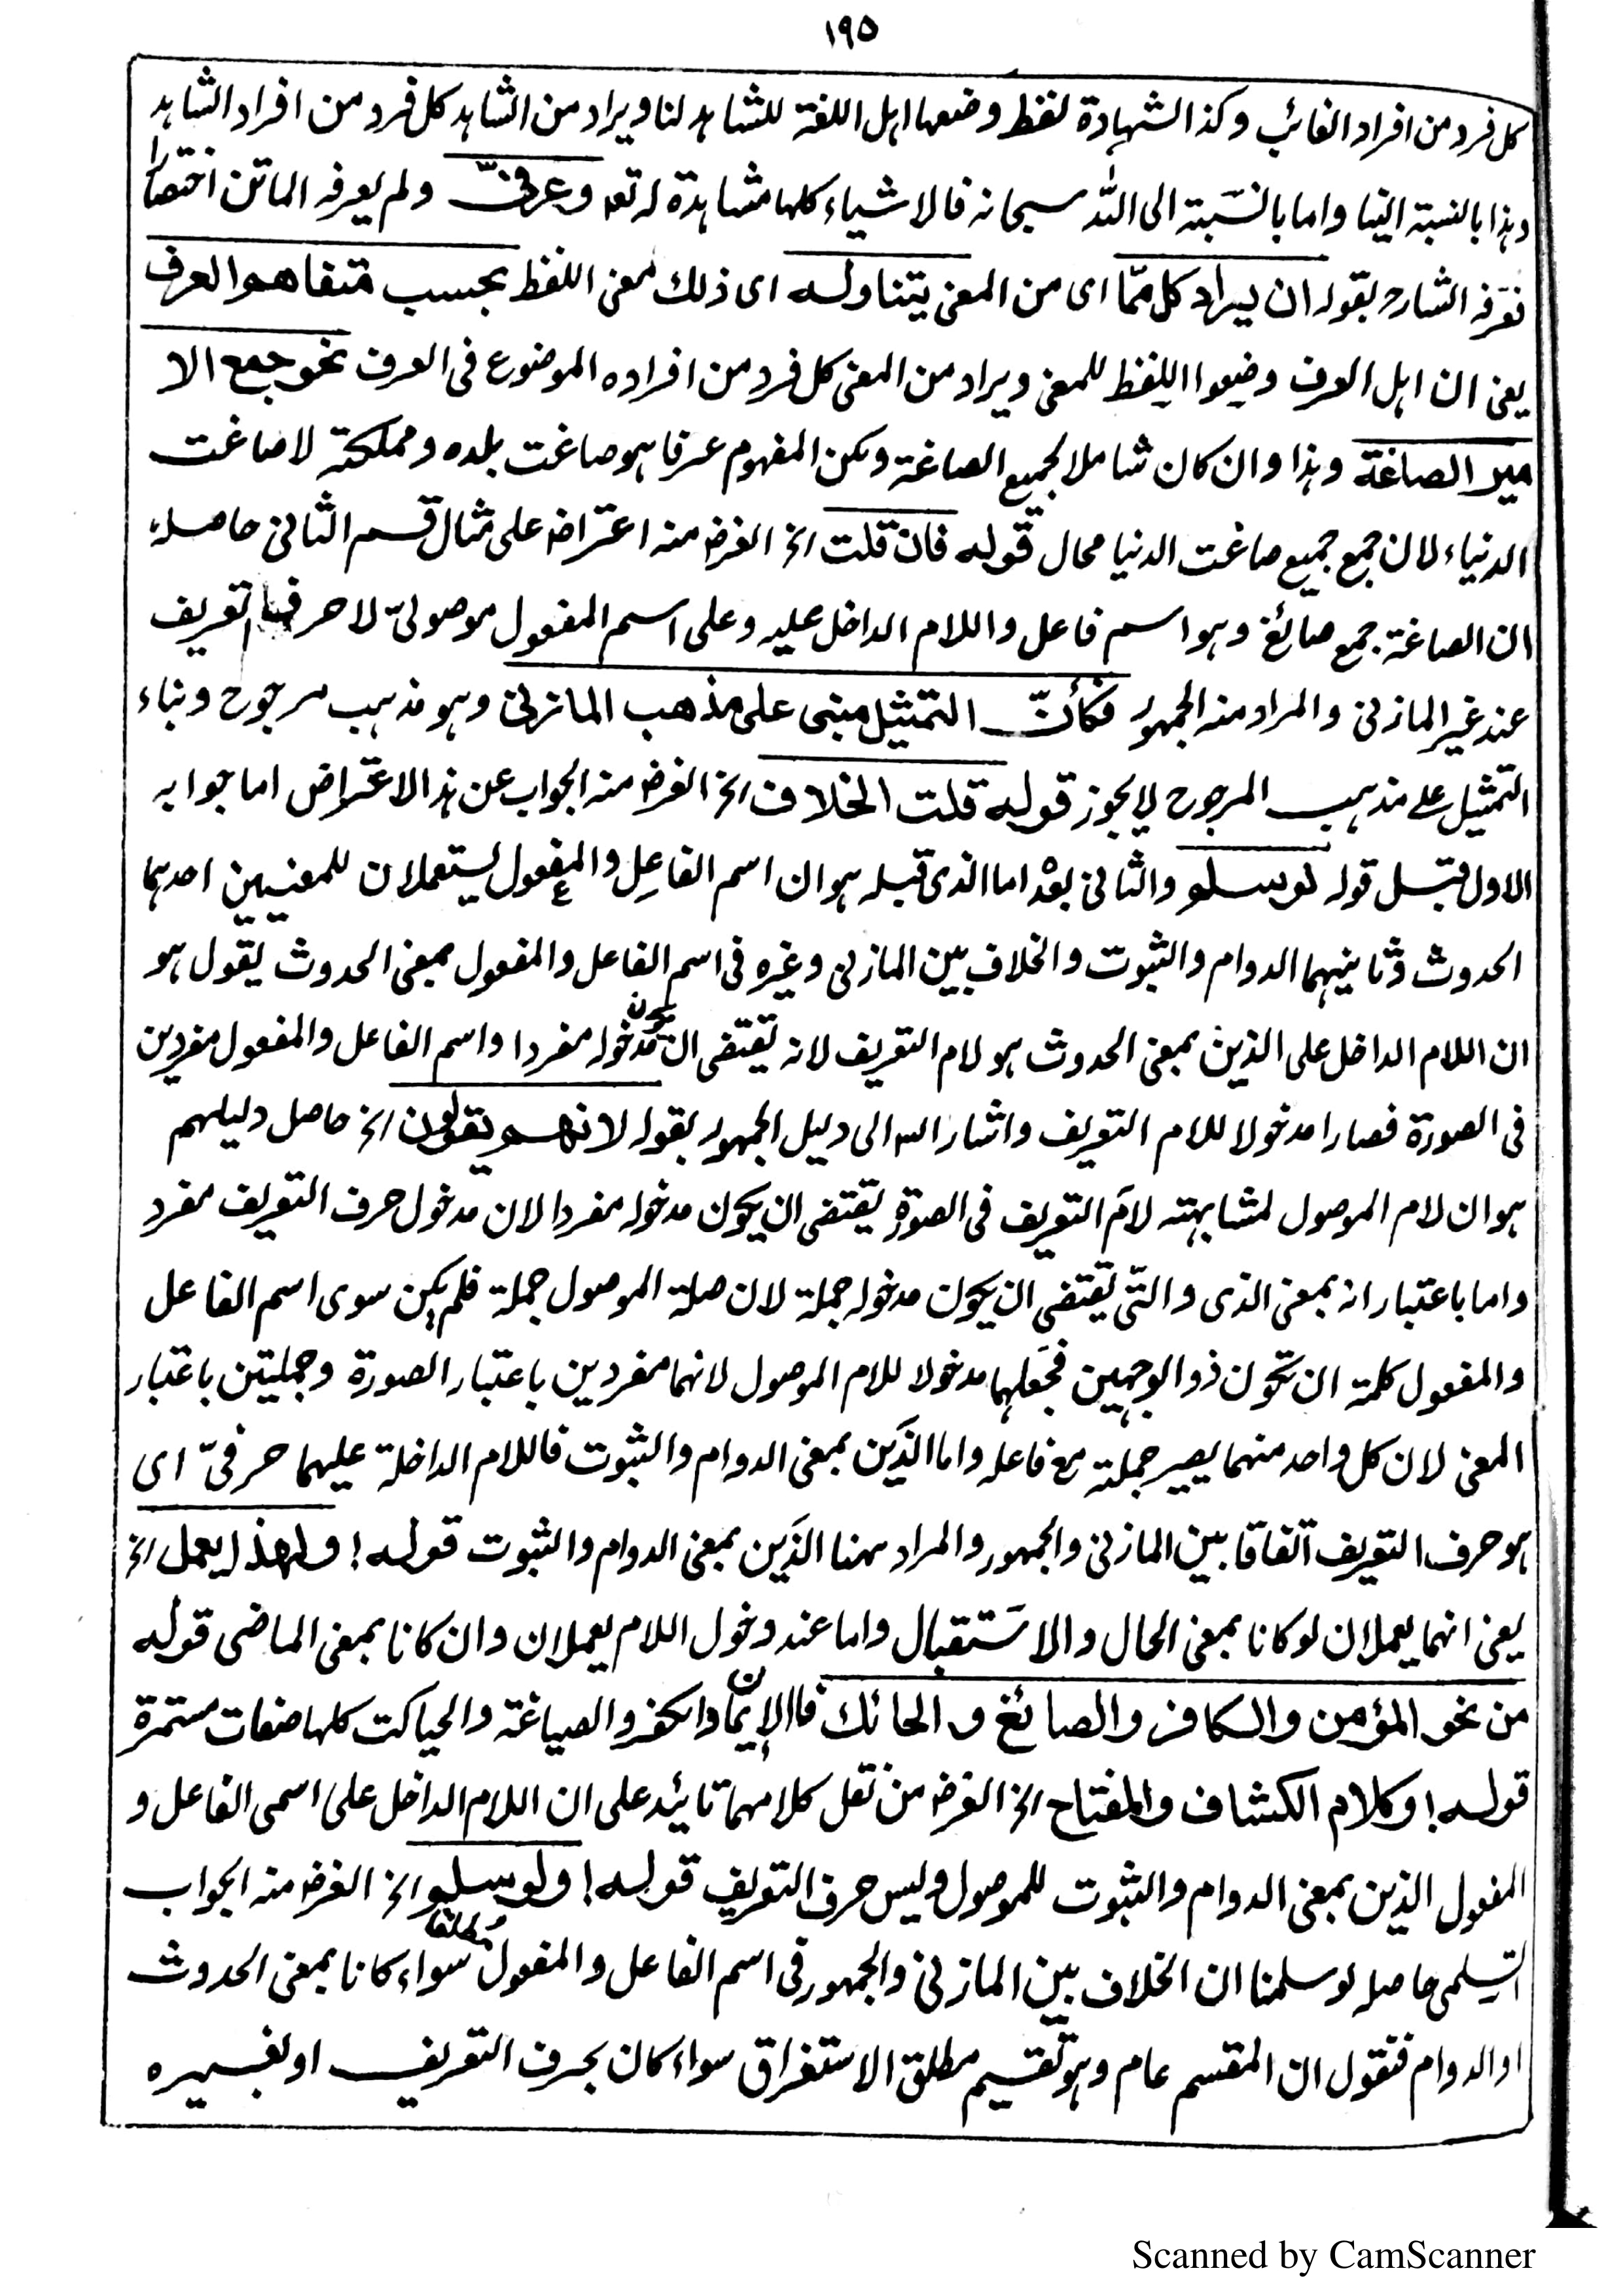 ١٩٥
كل فرد من افراد الغائب وكذا الشهادة لفظ وضعها اهل اللغة للشاهد لنا ويراد من الشاهد كل فرد من افراد الشاهد
وہذا بالنسبة الينا واما بالنسَبة الى اللّٰه سبحانہ فالاشياء كلها مشاہدة لہ تعہ وعرفیّ ولم يعرفہ الماتن اختصارا
فعرّفہ الشارح بقولہ ان يراد كل ممّا اى من المعنى يتناوله اى ذلك المعنى اللفظ بحسب متفاهم العرف
يعنى ان اہل العرف وضعوا اللفظ للمعنى ويراد من المعنى كل فرد من افراده الموضوع فى العرف نحو جمع الا
مير الصاغة وہذا وان كان شاملا لجميع الصاغة ولكن المفہوم عرفا ہو صاغت بلده ومملكتہ لا صاغت
الدنياء لان جمع جميع صاغت الدنيا محال قوله فان قلت الخ الغرض منہ اعتراض على مثال قسم الثانى حاصلہ
ان الصاغة جمع صائغ وہو اسم فاعل واللام الداخل عليه وعلى اسم المفعول موصولیّ لا حرف التعريف
عند غير المازنى والمراد منہ الجمہور فكأنّ التمثيل مبنى على مذهب المازنى وہو مذہب مرجوح وبناء
التمثيل على مذہب المرجوح لا يجوز قوله قلت الخلاف الخ الغرض منہ الجواب عن ہذ الاعتراض اما جوابہ
الاول قبل قولہ لو سلم والثانى بعدْ اما الذى قبلہ ہو ان اسم الفاعِل والمفعول يستعملان للمعنيين احدہما
الحدوث وثانيہما الدوام والثبوت والخلاف بين المازنى وغيره فى اسم الفاعل والمفعول بمعنى الحدوث يقول ہو
ان اللام الداخل على الذين بمعنى الحدوث ہو لام التعريف لانہ تقتضى ان يكون مدخولہ مفردا واسم الفاعل والمفعول مفردين
فى الصورة فصارا مدخولا للام التعريف واشار الى دليل الجمہور بقولہ لانهم يقولون الخ حاصل دليلہم
ہو ان لام الموصول لمشابہتہ لامَ التعريف فى الصورة يقتضى ان يكون مدخولہ مفردا لان مدخول حرف التعريف مفرد
واما باعتبار انہ بمعنى الذى والتى تقتضى ان يكون مدخولہ جملة لان صلة الموصول جملة فلم يكن سوى اسم الفاعل
والمفعول كلمة ان تكون ذو الوجہين فجَعلہا مدخولا للام الموصول لانہما مفردين باعتبار الصورة وجملتين باعتبار
المعنى لان كل واحد منهما يصير جملة مع فاعلہ واما الذَين بمعنى الدوام والثبوت فاللام الداخلة عليهما حرفیّ اى
ہو حرف التعريف اتفاقا بين المازنى والجمہور والمراد ہہنا الذَين بمعنى الدوام والثبوت قوله؛ ولهذا يعمل الخ
يعنى انہما يعملان لو كانا بمعنى الحال والاستَقبال واما عند دخول اللام يعملان وان كانا بمعنى الماضى قوله
من نحو المؤمن والكافر والصائغ والحائك فالايمان والكفر والصياغة والحياكت كلها صفات مستمرة
قوله؛ وكلام الكشاف والمفتاح الخ الغرض من نقل كلامہما تائيد على ان اللام الداخل على اسمى الفاعل و
المفعول الذين بمعنى الدوام والثبوت للموصول وليس حرف التعريف قوله؛ ولو سلم الخ الغرض منہ الجواب
التسلمى حاصلہ لو سلمنا ان الخلاف بين المازنى والجمہور فى اسم الفاعل والمفعول مطلقا سواء كانا بمعنى الحدوث
او الدوام فنقول ان المقسم عام وہو تقسيم مطلق الاستغراق سواء كان بحرف التعريف او بغيره
Scanned by CamScanner